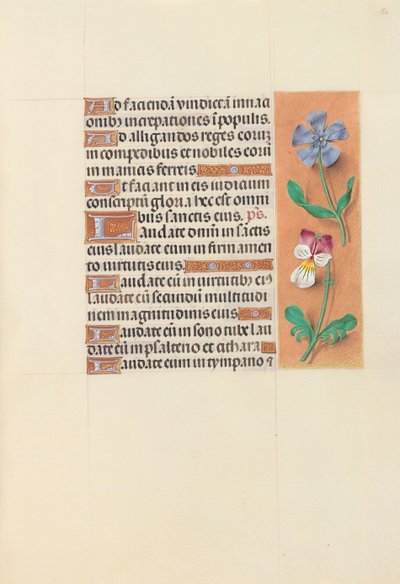 Ad faciendā vindictā in nac
onibꝫ increpationes ī populis.
Ad alligandos reges coruꝫ
in compedibus et nobiles corū
in manicis ferreis
Ut faciant in eis iudicium
conscriptū gloria hec est omni
bus sanctis eius. ps.
Laudate dn̄m in sāctis
eius laudate eum in firmamen
to virtutis eius.
Laudate eū in virtutibꝫ eiꝰ
laudate eū secundū multitudi
nem magnitudinis eius
Laudate eū in sono tube lau
date eū in psalterio et cithara
Laudate eum in tympano ⁊